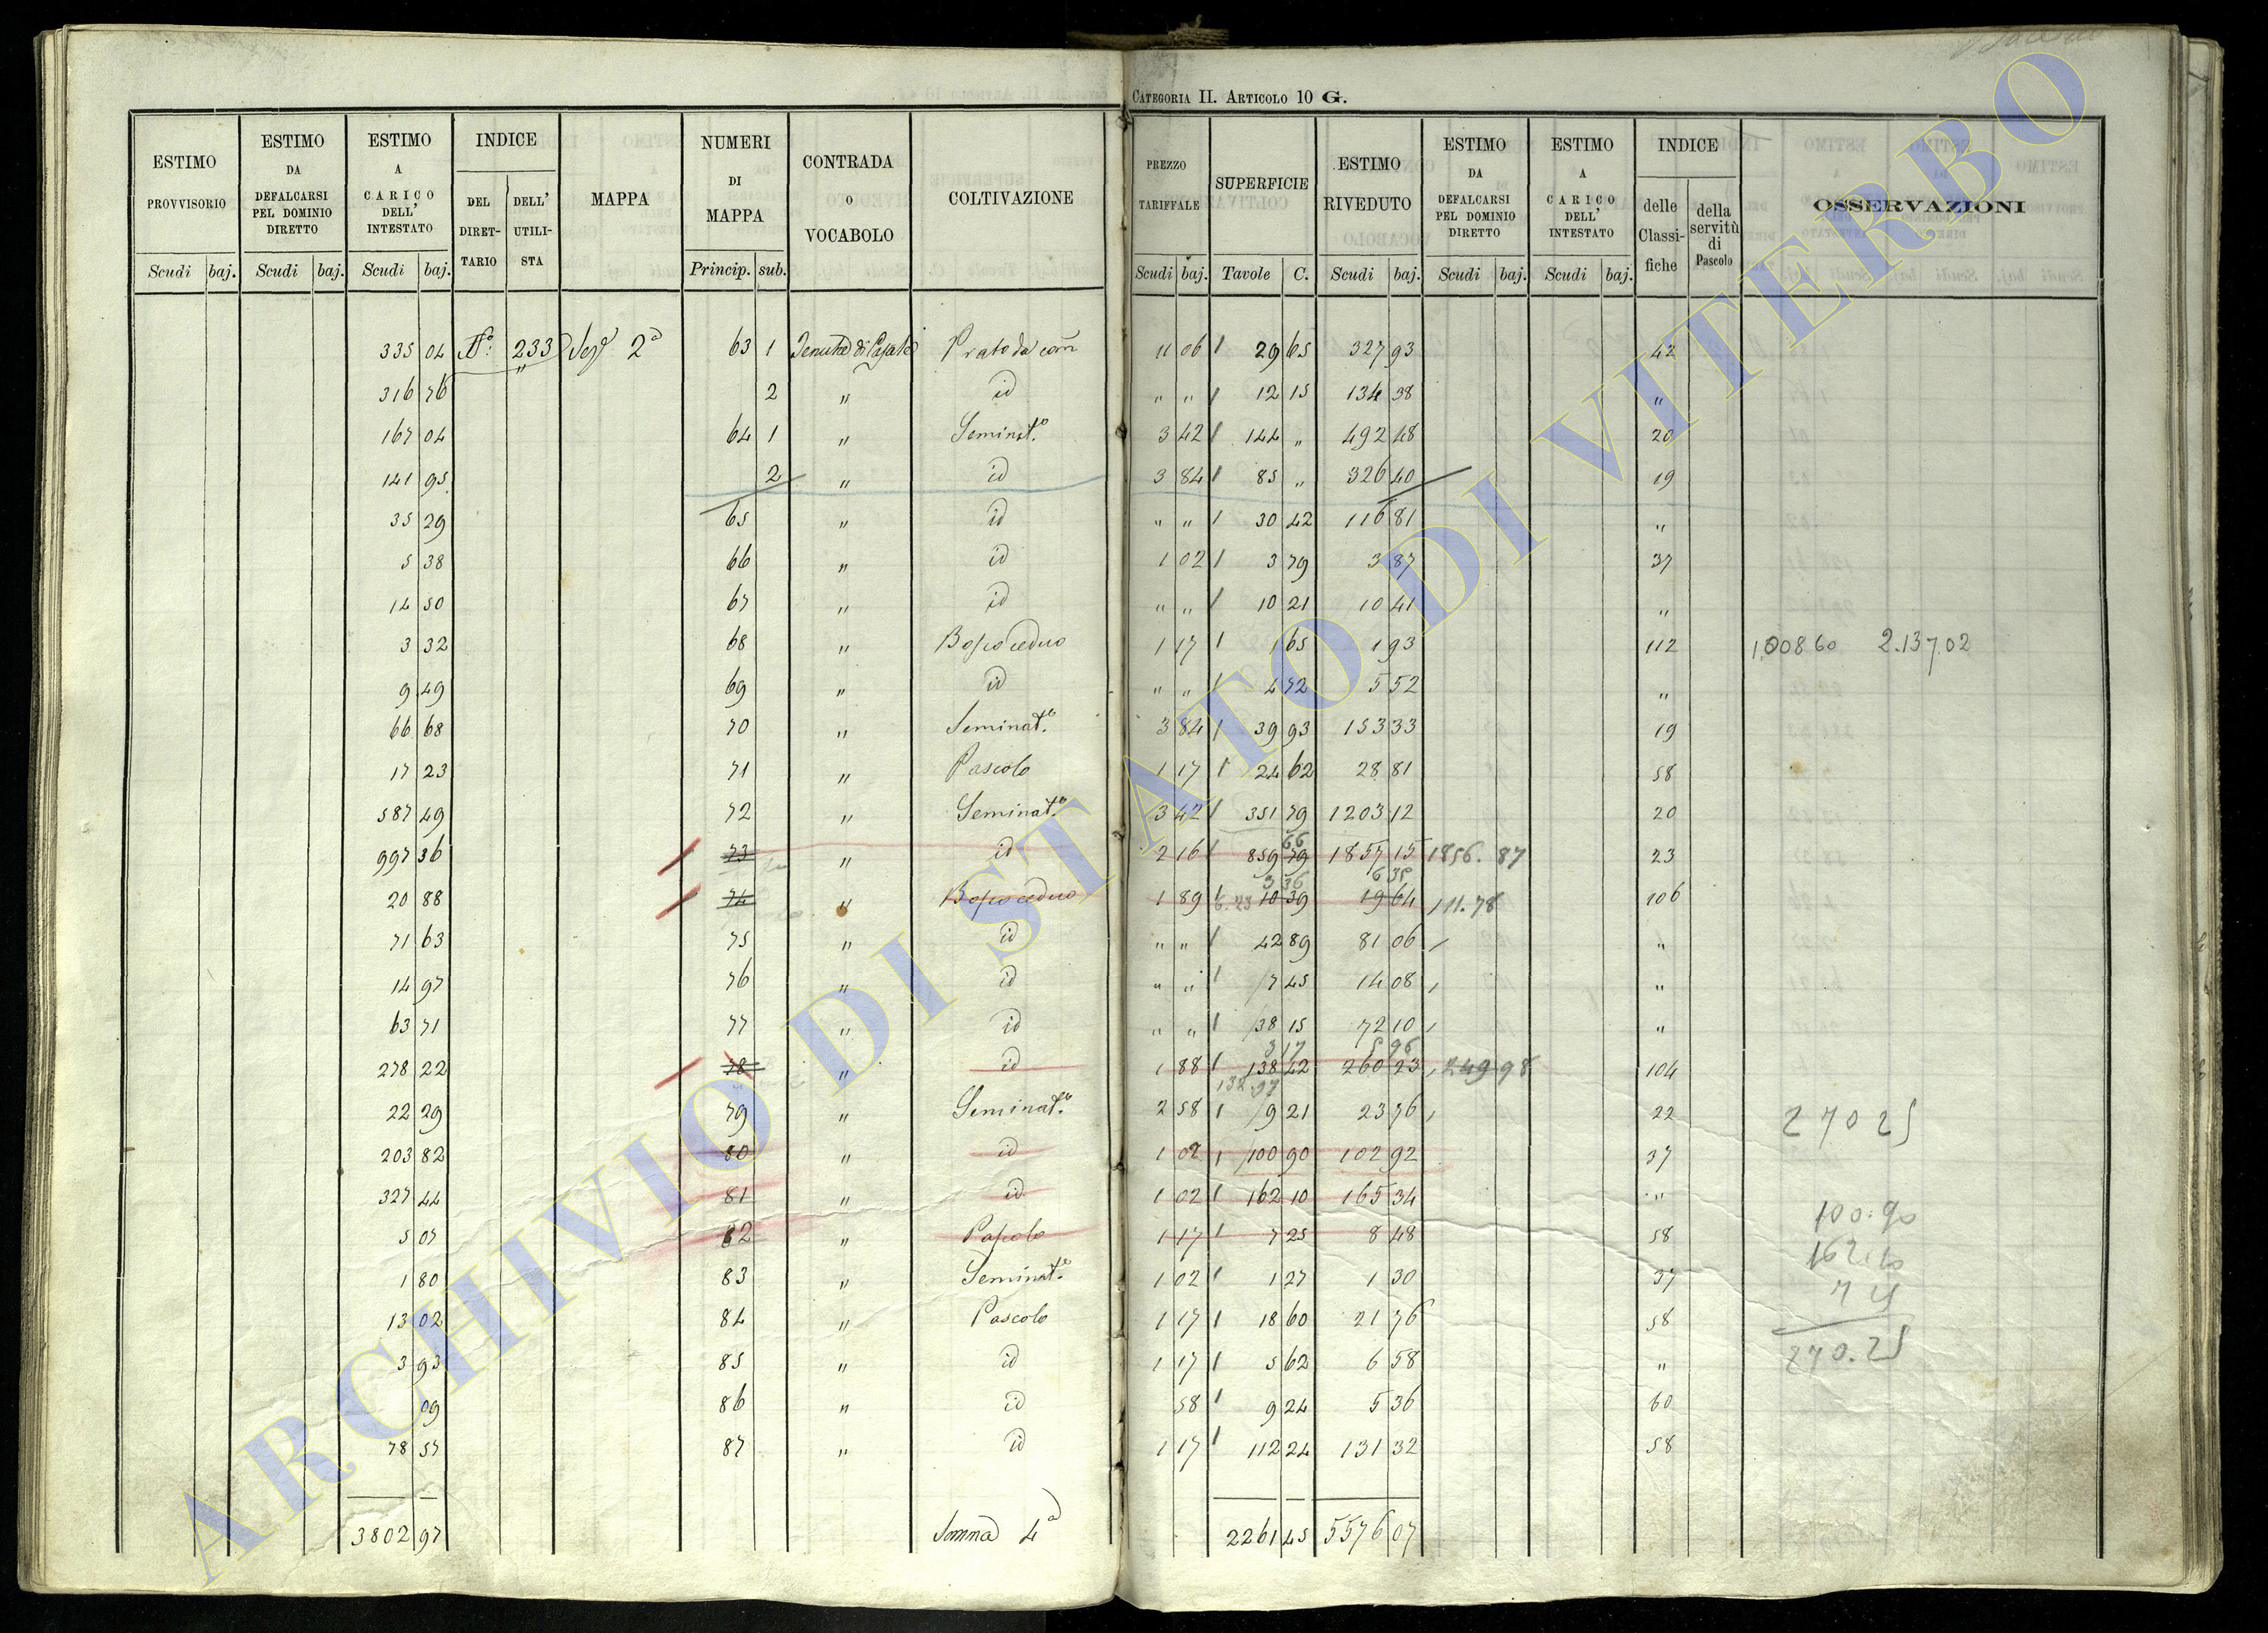 CATEGORIA II. ARTICOLO 10 G.
ESTIMO PROVVISORIO | ESTIMO DA DEFALCARSI PEL DOMINIO DIRETTO | ESTIMO A CARICO DELL' INTESTATO | INDICE DEL DIRETTARIO | DELL' UTILISTA | MAPPA | NUMERI DI MAPPA | CONTRADA O VOCABOLO | COLTIVAZIONE | PREZZO TARIFFALE | SUPERFICIE | ESTIMO RIVEDUTO | ESTIMO DA DEFALCARSI PEL DOMINIO DIRETTO | ESTIMO A CARICO DELL' INTESTATO | INDICE delle Classifiche | della servitù di Pascolo | OSSERVAZIONI
Scudi baj. | Scudi baj. | Scudi baj. | Princip. sub. | Scudi baj. | Tavole C. | Scudi baj. | Scudi baj. | Scudi baj.
335 04 | N°: 233 | Sezᵉ 2ª | 63 1 | Tenuta di Casale | Prato da | 11 06 | 29 65 | 327 93 | 42
316 76 | 2 | " | id | " " | 12 15 | 134 38 | "
167 04 | 64 1 | " | Seminat.º | 3 42 | 144 " | 492 48 | 20
141 95 | 2 | " | id | 3 84 | 85 " | 326 40 | 19
35 29 | 65 | " | id | " " | 30 42 | 116 81 | "
5 38 | 66 | " | id | 1 02 | 3 79 | 3 87 | 37
14 50 | 67 | " | id | " " | 10 21 | 10 41 | "
3 32 | 68 | " | Bosco ceduo | 1 17 | 1 65 | 1 93 | 112 | 1,00860 2.137.02
9 49 | 69 | " | id | " " | 4 72 | 5 52 | "
66 68 | 70 | " | Seminat.º | 3 84 | 39 93 | 153 33 | 19
17 23 | 71 | " | Pascolo | 1 17 | 24 62 | 28 81 | 58
587 49 | 72 | " | Seminat.º | 3 42 | 351 79 | 1203 12 | 20
66
997 36 | 73 | " | id | 2 16 | 859 79 | 1857 15 | 1856. 87 | 23
3 36 | 6 35
20 88 | 74 | " | Bosco ceduo | 1 89 | 10 39 | 19 64 | 111.78 | 106
71 63 | 75 | " | id | " " | 42 89 | 81 06 | "
14 97 | 76 | " | id | " " | 7 45 | 14 08 | "
63 71 | 77 | " | id | " " | 38 15 | 72 10 | "
3 17 | 5 96
278 22 | 78 | " | id | 1 88 | 138 42 | 260 23 | 249 98 | 104
132.97
22 29 | 79 | " | Seminat.º | 2 58 | 9 21 | 23 76 | 22 | 270 25
203 82 | 80 | " | id | 1 02 | 100 90 | 102 92 | 37
327 44 | 81 | " | id | 1 02 | 162 10 | 165 34 | " | 100.90
5 07 | 82 | " | Pascolo | 1 17 | 7 25 | 8 48 | 58 | 162.10
1 80 | 83 | " | Seminat.º | 1 02 | 1 27 | 1 30 | 37 | 7 25
13 02 | 84 | " | Pascolo | 1 17 | 18 60 | 21 76 | 58
3 93 | 85 | " | id | 1 17 | 5 62 | 6 58 | " | 270.25
09 | 86 | " | id | 58 | 9 24 | 5 36 | 60
78 57 | 87 | " | id | 1 17 | 112 24 | 131 32 | 58
3802 97 | Somma 4ª | 2261 45 | 5576 07
ARCHIVIO DI STATO DI VITERBO